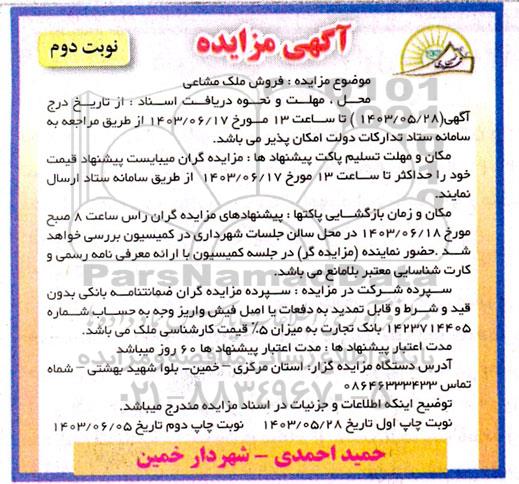 آگهی مزایده
نوبت دوم
موضوع مزایده : فروش ملک مشاعی
محل ، مهلت و نحوه دریافت اسناد : از تاریخ درج
آگهی(۱۴۰۳/۰۵/۲۸ ) تا ساعت ۱۳ مورخ ۱۴۰۳/۰۶/۱۷ از طریق مراجعه به
سامانه ستاد تدارکات دولت امکان پذیر می باشد.
مکان و مهلت تسلیم پاکت پیشنهاد ها : مزایده گران میبایست پیشنهاد قیمت
خود را حداکثر تا ساعت ۱۳ مورخ ۱۴۰۳/۰۶/۱۷ از طریق سامانه ستاد ارسال
نمایند.
مکان و زمان بازگشایی پاکتها : پیشنهادهای مزایده گران راس ساعت ۸ صبح
مورخ ۱۴۰۳/۰۶/۱۸ در محل سالن جلسات شهرداری در کمیسیون بررسی خواهد
شد .حضور نماینده (مزایده گر) در جلسه کمیسیون با ارائه معرفی نامه رسمی و
کارت شناسایی معتبر بلامانع می باشد.
سپرده شرکت در مزایده : سپرده مزایده گران ضمانتنامه بانکی بدون
قید و شرط و قابل تمدید به دفعات یا اصل فیش واریز وجه به حساب شماره
۱۴۲۳۷۱۴۴۰۵ بانک تجارت به میزان ۵٪ قیمت کارشناسی ملک می باشد.
مدت اعتبار پیشنهاد ها : مدت اعتبار پیشنهاد ها ۶۰ روز میباشد
آدرس دستگاه مزایده گزار: استان مرکزی – خمین- بلوا شهید بهشتی – شماه
تماس ۰۸۶۴۶۳۳۳۴۳۳
توضیح اینکه اطلاعات و جزئیات در اسناد مزایده مندرج میباشد.
نوبت چاپ اول تاریخ ۱۴۰۳/۰۵/۲۸ نوبت چاپ دوم تاریخ ۱۴۰۳/۰۶/۰۵
حمید احمدی - شهردار خمین
ParsNamadData
پایگاه اطلاع رسانی مناقصه مزایده
۰۲۱-۸۸۳۴۹۶۷۰-۵